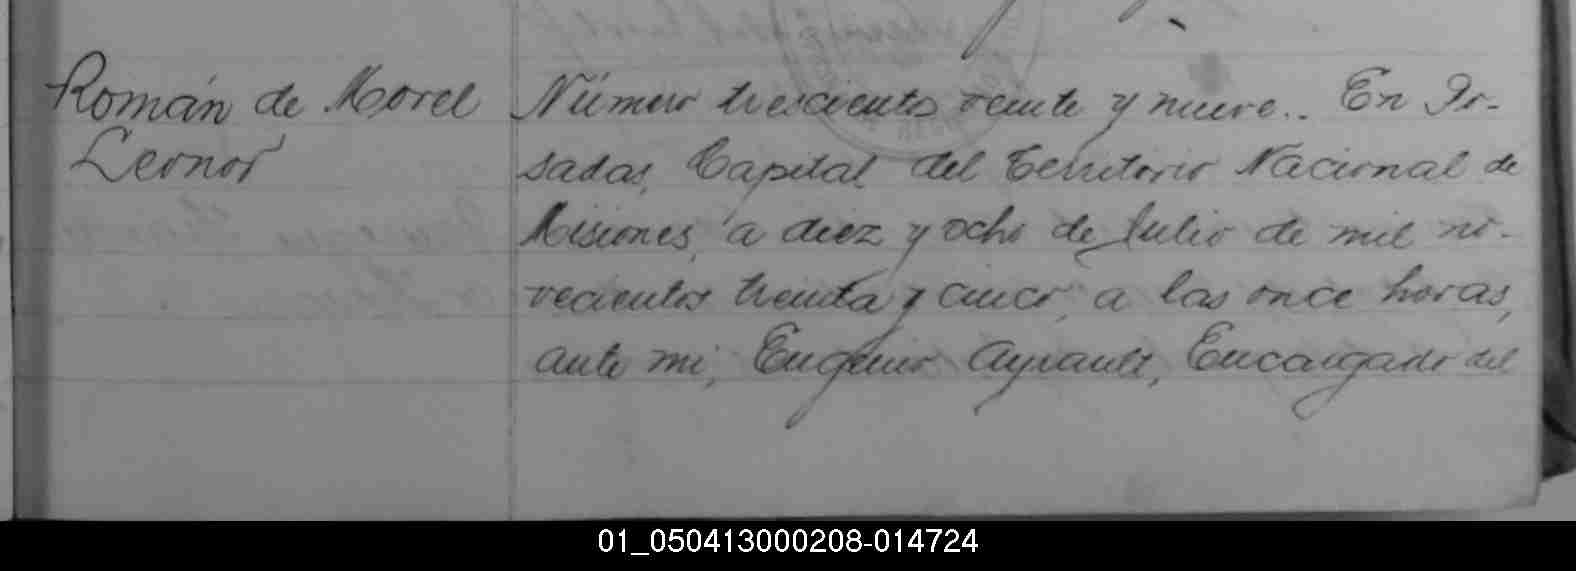 Román de Morel
Leonor
Número trescientos veinte y nueve.. En Po-
sadas, Capital del Territorio Nacional de
Misiones, a diez y ocho de Julio de mil no-
vecientos treinta y cinco, a las once horas,
ante mi, Eugenio Ayrault, Encargado del
01_050413000208-014724